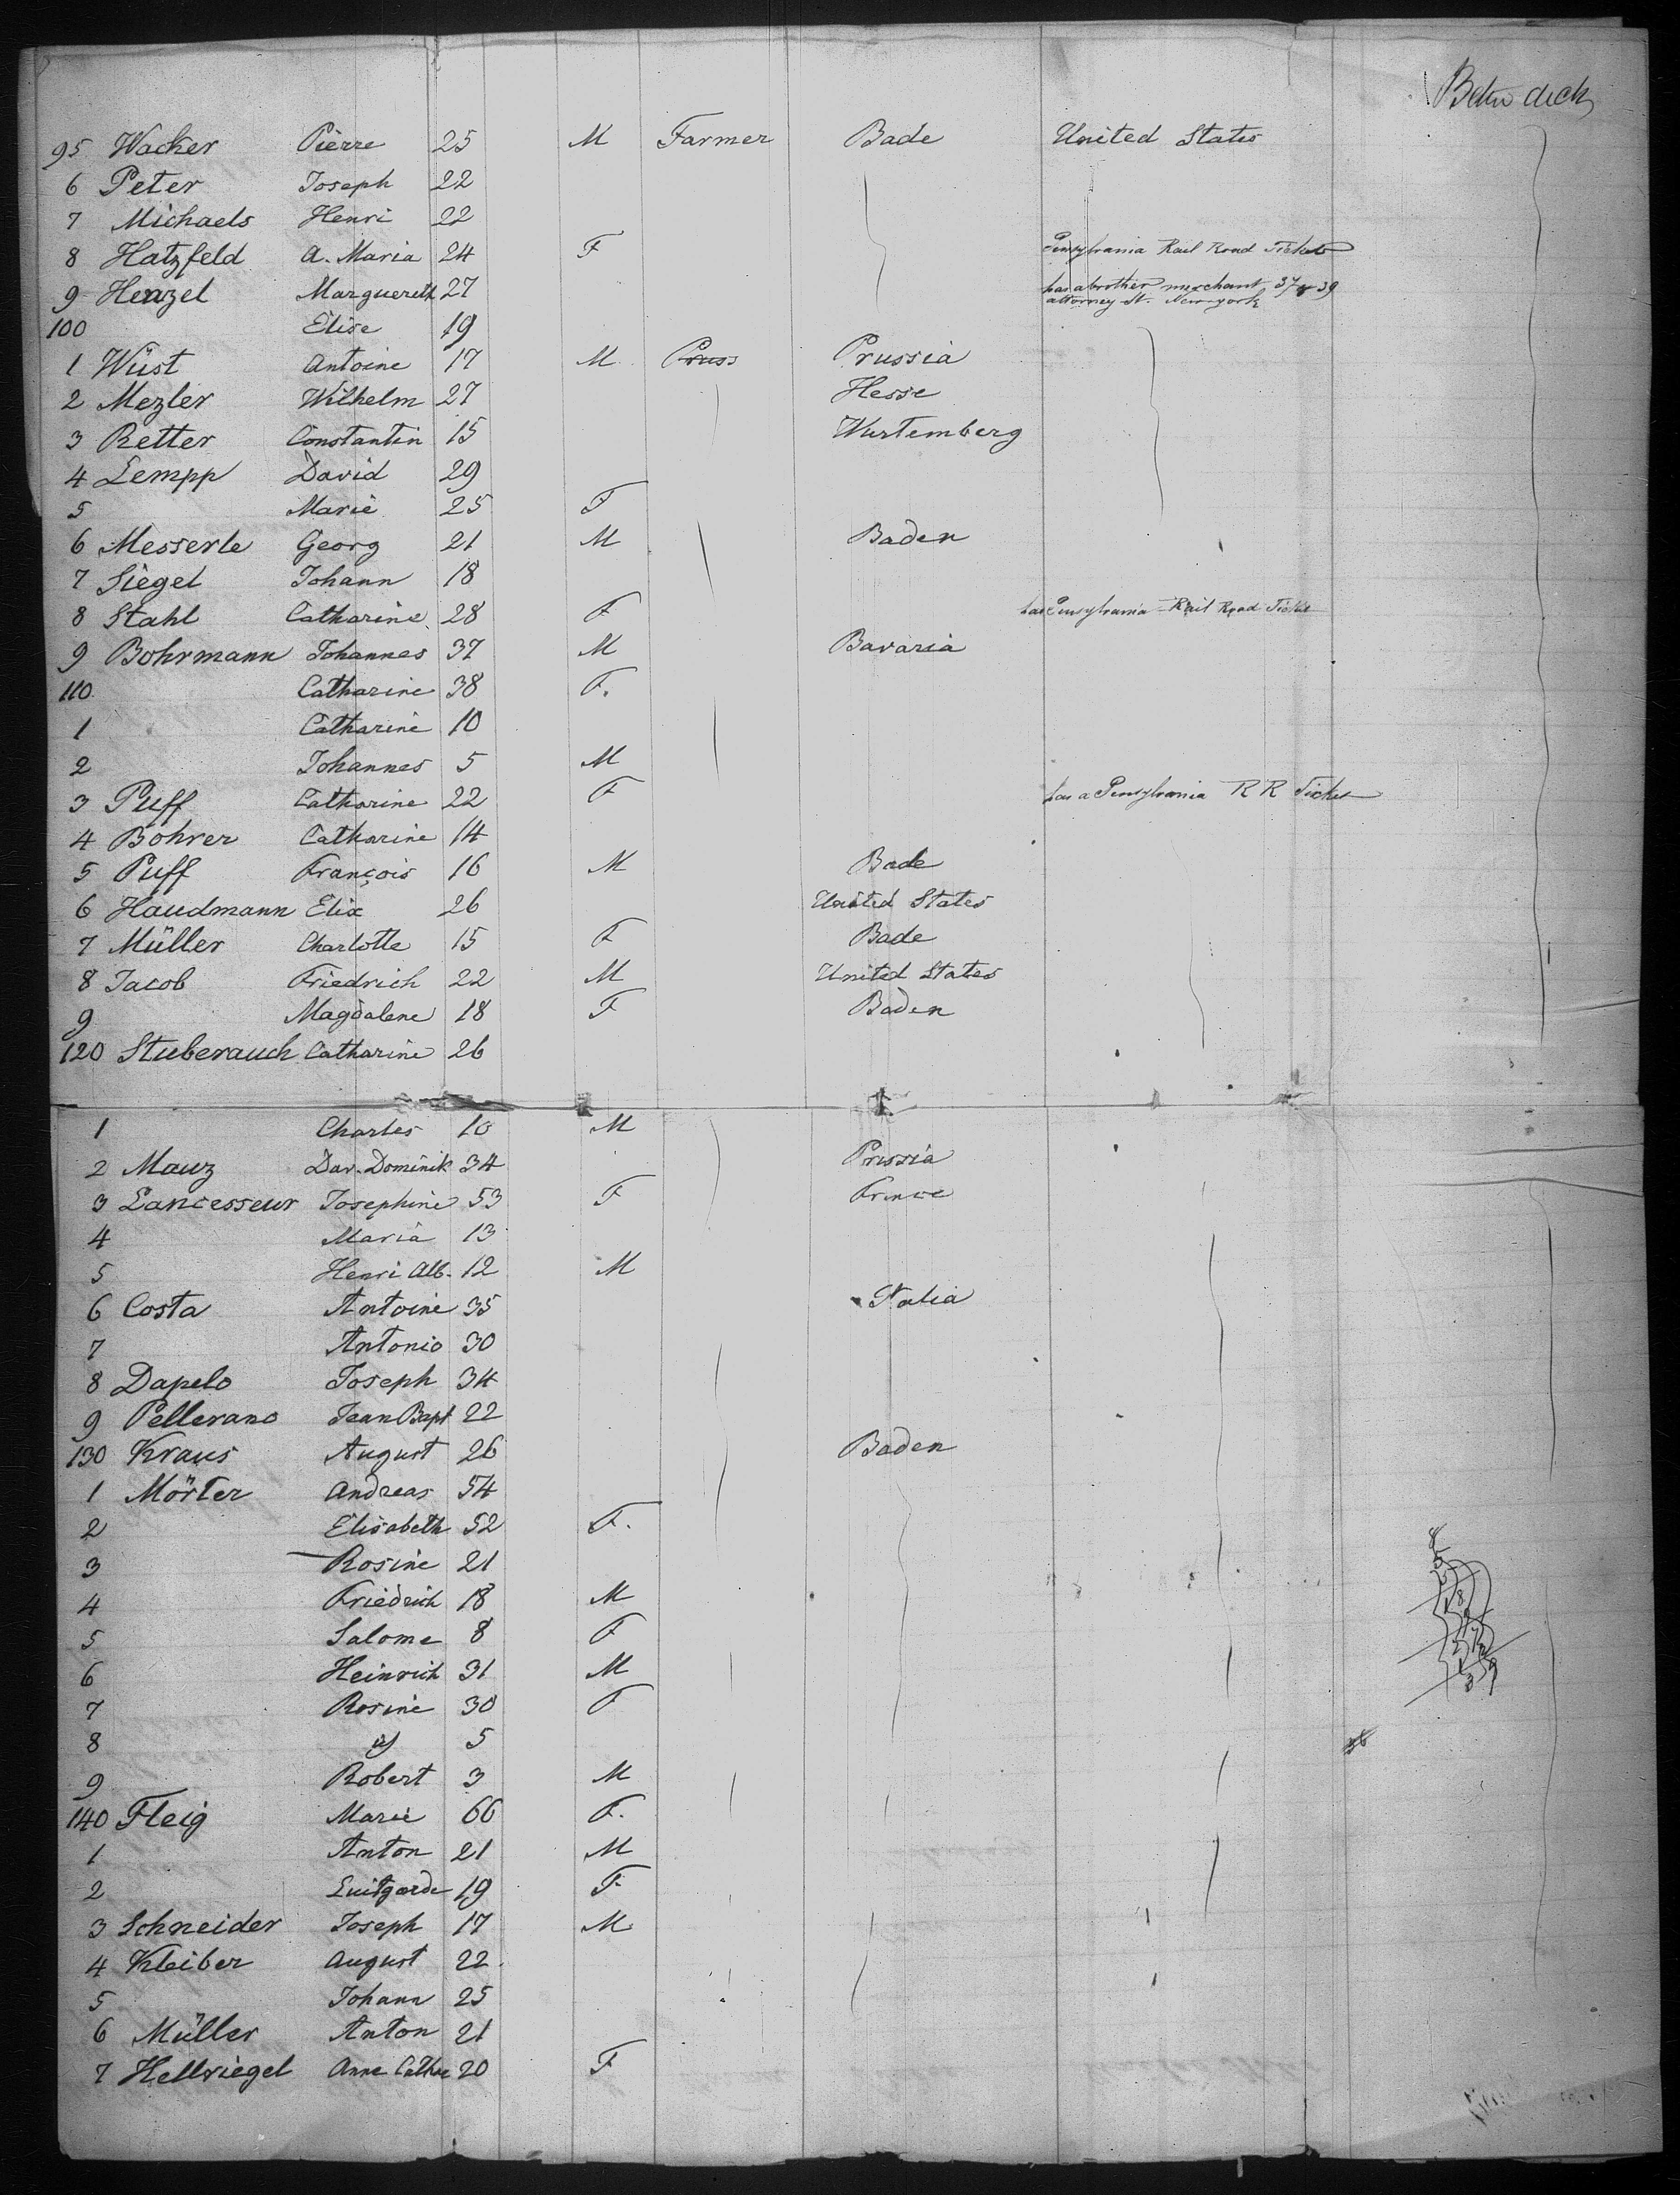 Betw deck
95 Wacker Pierre 25 M Farmer Bade United States
6 Peter Joseph 22
7 Michaels Henri 22
8 Hatzfeld A. Maria 24 F Pensylvania Rail Road Tickets
9 Henzel Marguereth 27 has a brother merchant 37 & 39
attorney St. New-york
100 Elise 19
1 Wüst Antoine 17 M Pruss Prussia
2 Mezler Wilhelm 27 Hesse
3 Retter Constantin 15 Wurtemberg
4 Lempp David 29
5 Marie 25 F
6 Messerle Georg 21 M Baden
7 Siegel Johann 18
8 Stahl Catharine 28 F has Pensylvania Rail Road Ticket
9 Bohrmann Johannes 37 M Bavaria
110 Catharine 38 F.
1 Catharine 10
2 Johannes 5 M
3 Puff Catharine 22 F has a Pensylvania R R Ticket
4 Bohrer Catharine 14
5 Puff François 16 M Bade
6 Haudmann Elix 26 United States
7 Müller Charlotte 15 F Bade
8 Jacob Friedrich 22 M United States
9 Magdalene 18 F Baden
120 Stuberauch Catharine 26
1 Charles 10 M
2 Mauz Dav. Dominik 34 Prussia
3 Lancesseur Josephine 53 F France
4 Maria 13
5 Henri Alb. 12 M
6 Costa Antoine 35 Italia
7 Antonio 30
8 Dapelo Joseph 34
9 Pellerano Jean Bapt 22
130 Kraus August 26 Baden
1 Mörter Andreas 54
2 Elisabeth 52 F.
3 Rosine 21
4 Friedrich 18 M
5 Salome 8 F
6 Heinrich 31 M
7 Rosine 30 F
8 " 5
9 Robert 3 M
140 Fleig Marie 66 F.
1 Anton 21 M
2 Luitgarde 19 F
3 Schneider Joseph 17 M
4 Kleiber August 22
5 Johann 25
6 Müller Anton 21
7 Hellriegel Anne Cathar 20 F